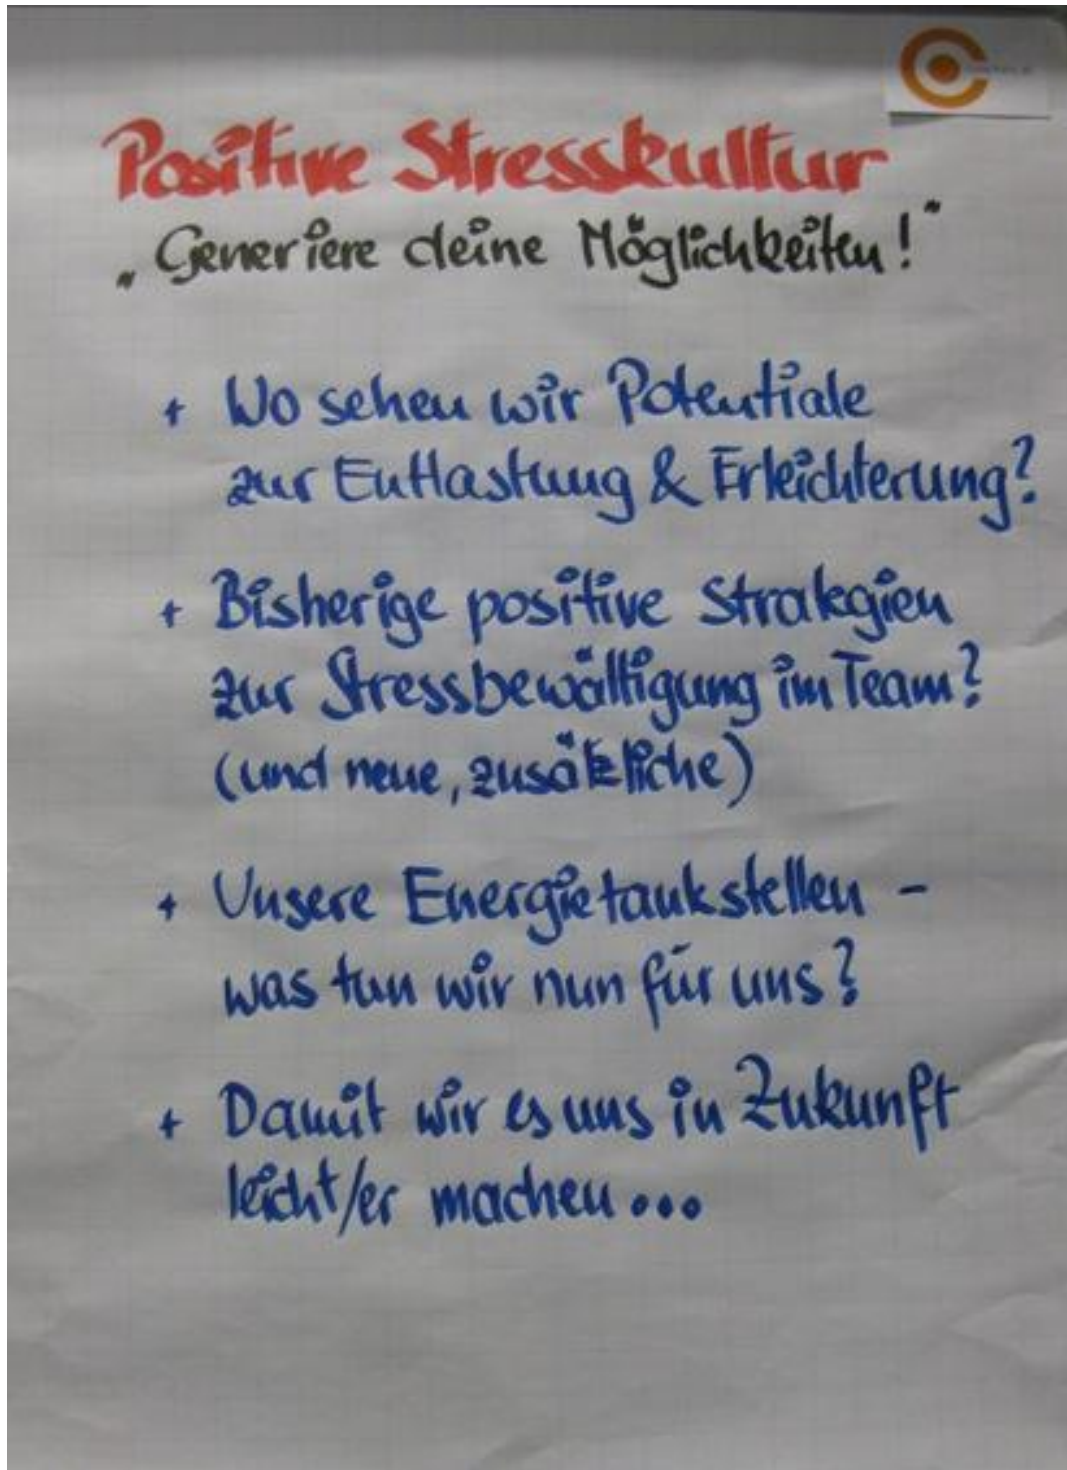 Positive Stresskultur
„Generiere deine Möglichkeiten!"
+ Wo sehen wir Potentiale
zur Entlastung & Erleichterung?
+ Bisherige positive Strategien
zur Stressbewältigung im Team?
(und neue, zusätzliche)
+ Unsere Energietankstellen -
was tun wir nun für uns?
+ Damit wir es uns in Zukunft
leicht/er machen...